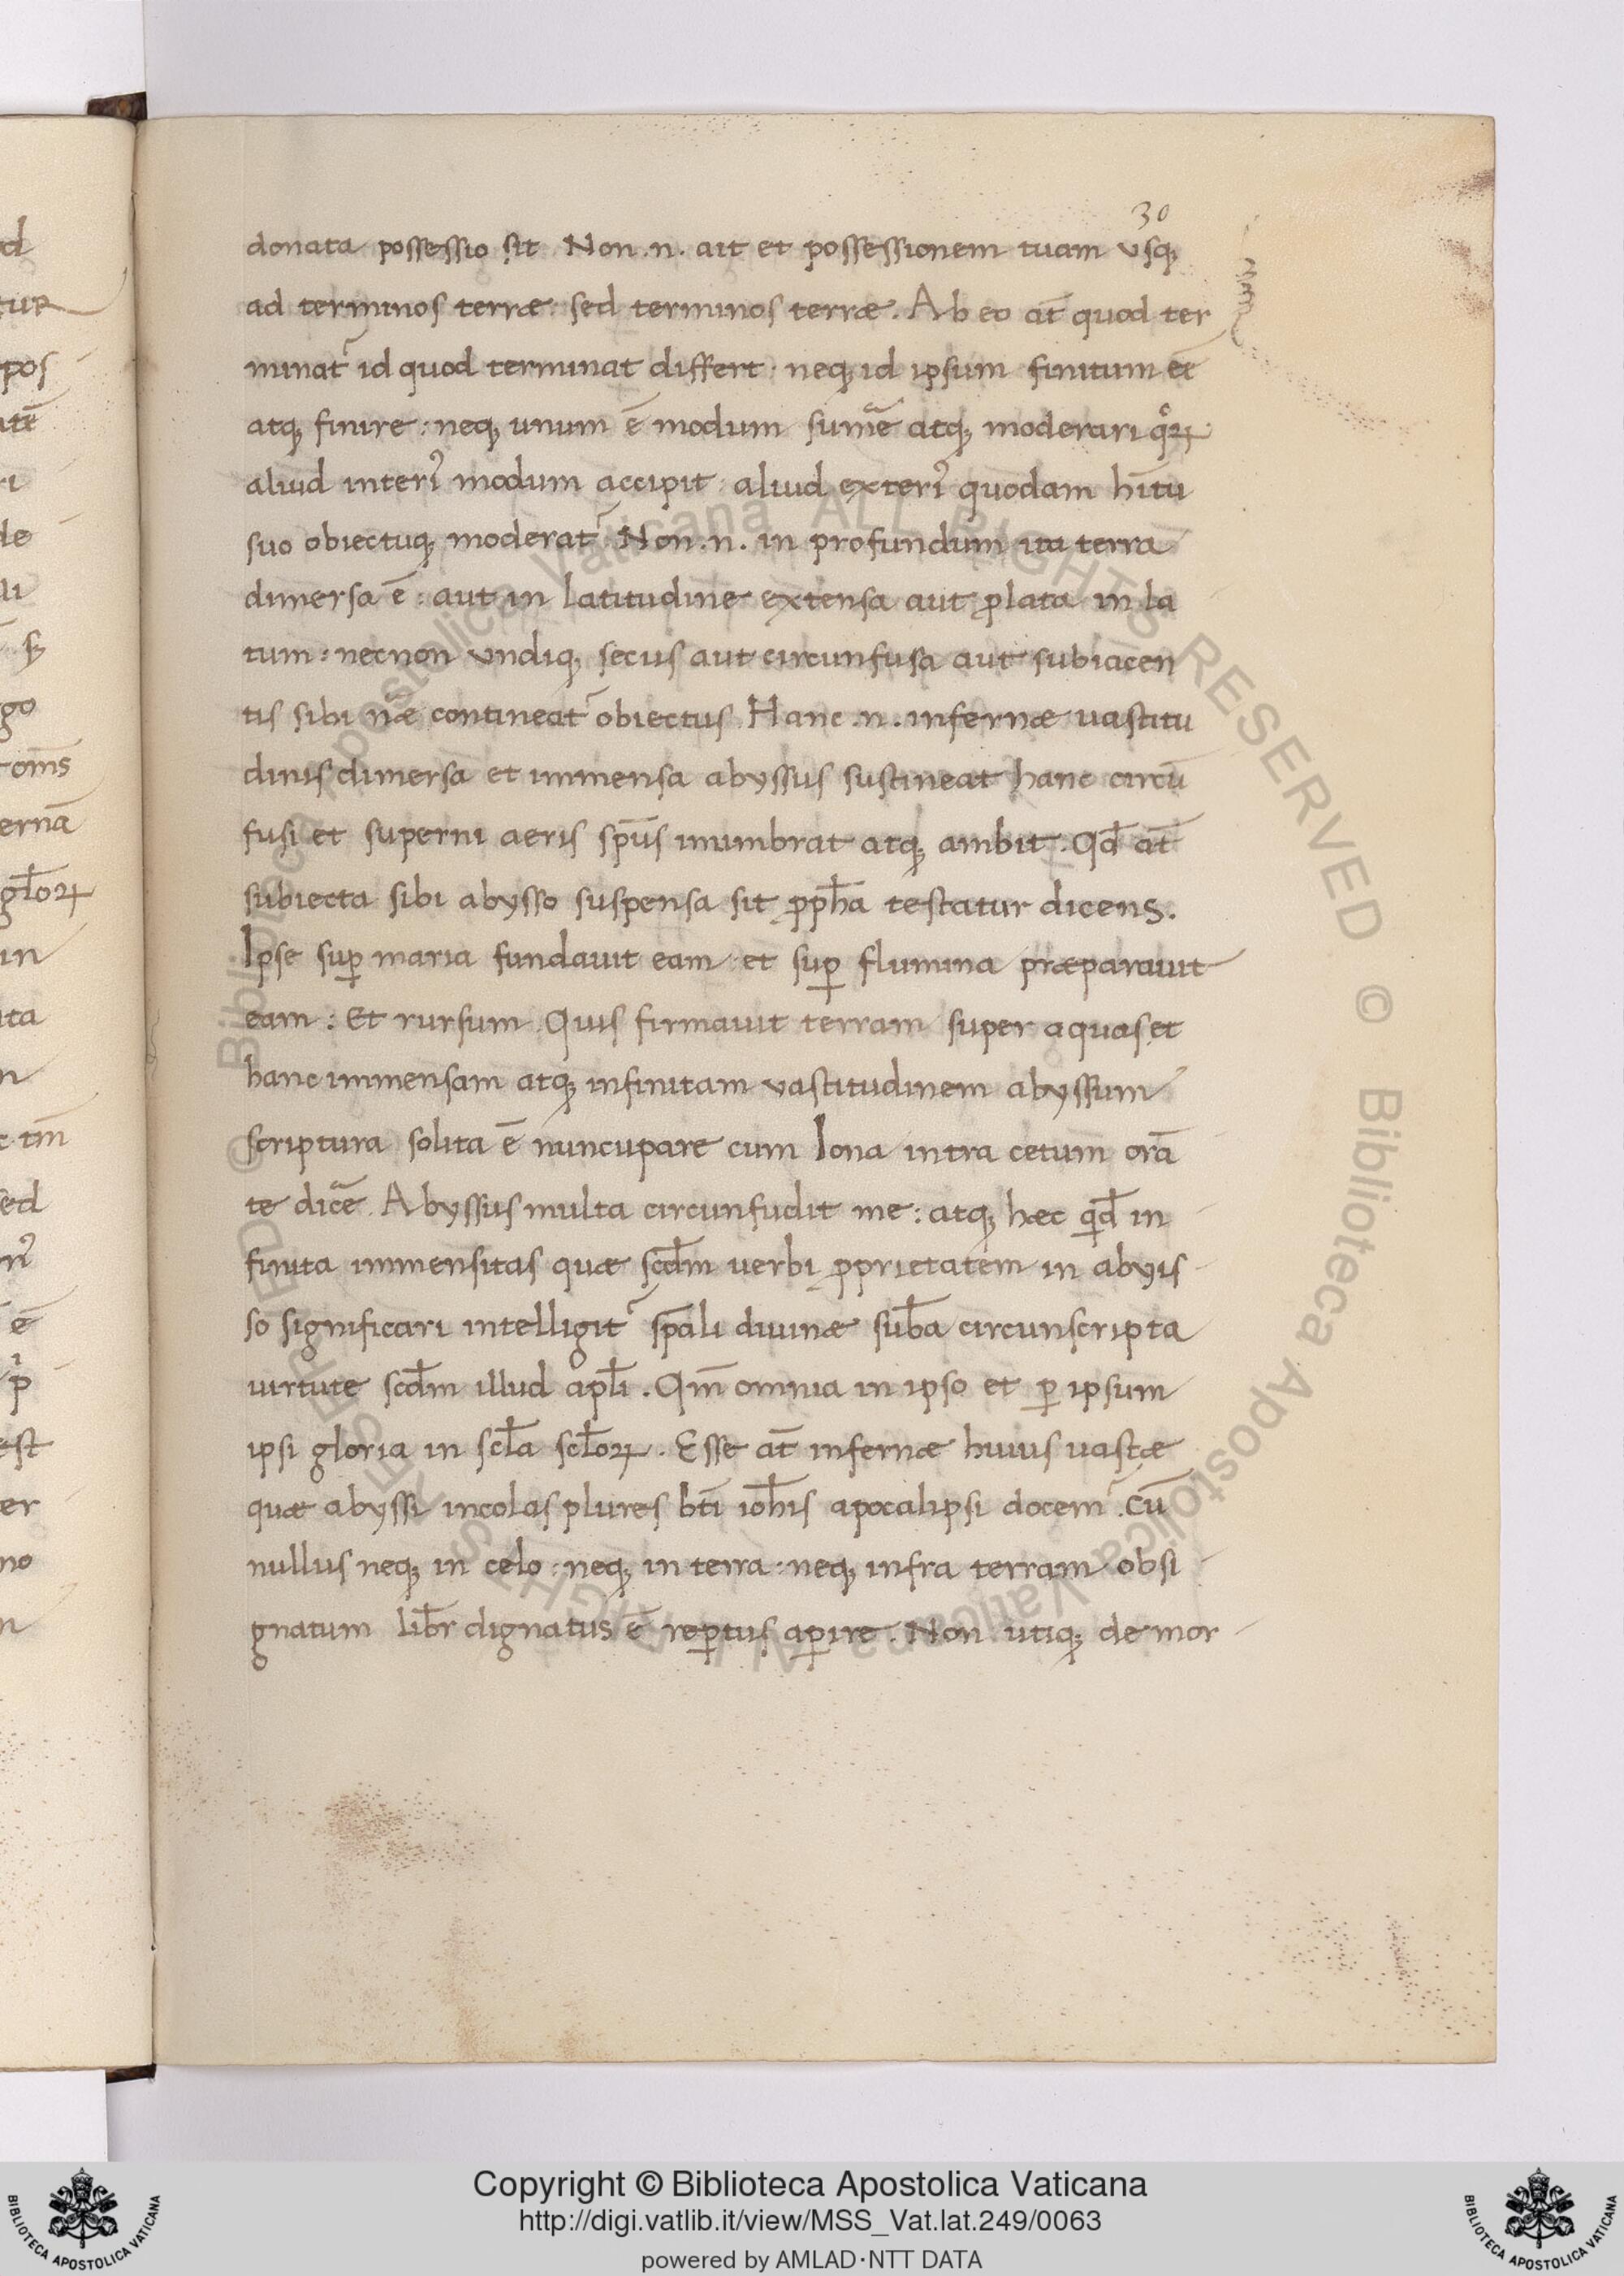 30
donata possessio sit Non .n. ait et possessionem tuam vsq;
ad terminos terræ: sed terminos terræ. Ab eo at̄ quod ter
minat᷑ id quod terminat differt: neq; id ipsum finitum eē
atq; finire: neq; unum ē modum sumē atq; moderari qͦꝝ
aliud interi᷑ modum accipit: aliud exteri᷑ quodam hītu
suo obiectuq; moderat᷑. Non .n. in profundum ita terra
dimersa ē: aut in latitudine extensa aut ꝓlata in la
tum: necnon vndiq; secus aut circunfusa aut subiacen
tis sibi nāe contineat᷑ obiectus. Hanc .n. infernæ vastitu
dinis dimersa et immensa abyssus sustineat hanc circū
fusi et superni aeris sp̄us inumbrat atq; ambit. Qd̄ at̄
subiecta sibi abysso suspensa sit ꝓph̄a testatur dicens.
Ipse suꝑ maria fundauit eam: et suꝑ flumina præparauit
eam: Et rursum. Quis firmauit terram super aquas, et
hanc immensam atq; infinitam vastitudinem abyssum
scriptura solita ē nuncupare cum Iona intra cetum orā
te dicē. Abyssus multa circunfudit me: atq; hæc qd̄ in
finita immensitas quæ scd̄m uerbi ꝓprietatem in abyis
so significari intelligit᷑ sp̄ali diuinæ sub̄a circunscripta
uirtute scd̄m illud apl̄i. Qm̄ omnia in ipso et ꝑ ipsum
ipsi gloria in scl̄a scl̄oꝝ. Esse at̄ infernæ huius uastæ
quæ abyssi incolas plures bt̄i ioh̄is apocalipsi docem᷑. Cū
nullus neq; in celo: neq; in terra: neq; infra terram obsi
gnatum lib̄r dignatus ē reꝑtus aꝑire. Non utiq; de mor
Copyright © Biblioteca Apostolica Vaticana
http://digi.vatlib.it/view/MSS_Vat.lat.249/0063
powered by AMLAD·NTT DATA
BIBLIOTECA APOSTOLICA VATICANA
BIBLIOTECA APOSTOLICA VATICANA